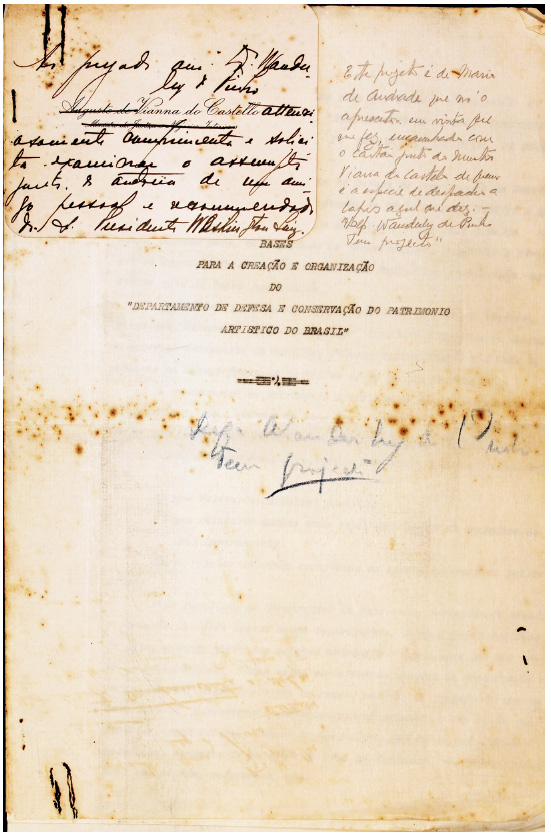 Ao prezado am.º D. Wander
ley d Pinho
Augusto de Vianna do Castello attenci
osamente comprimenta e solici
ta examinar o assumpto
junto, de um ami
go pessoal e recommendado
do S. Presidente Washington Luiz.
Este projeto é de Mario
de Andrade que m'o
apresentou em visita que
me fez, encaminhado com
o cartão junto do ministro
Viana do Castelo de quem
é a especie de despacho a
lapis azul que diz: –
"Dep. Wanderley de Pinho
Tem projecto"
BASES
PARA A CREAÇÃO E ORGANIZAÇÃO
DO
"DEPARTAMENTO DE DEFESA E CONSERVAÇÃO DO PATRIMONIO
ARTISTICO DO BRASIL"
Dep. Wanderley de Pinho
Tem projecto